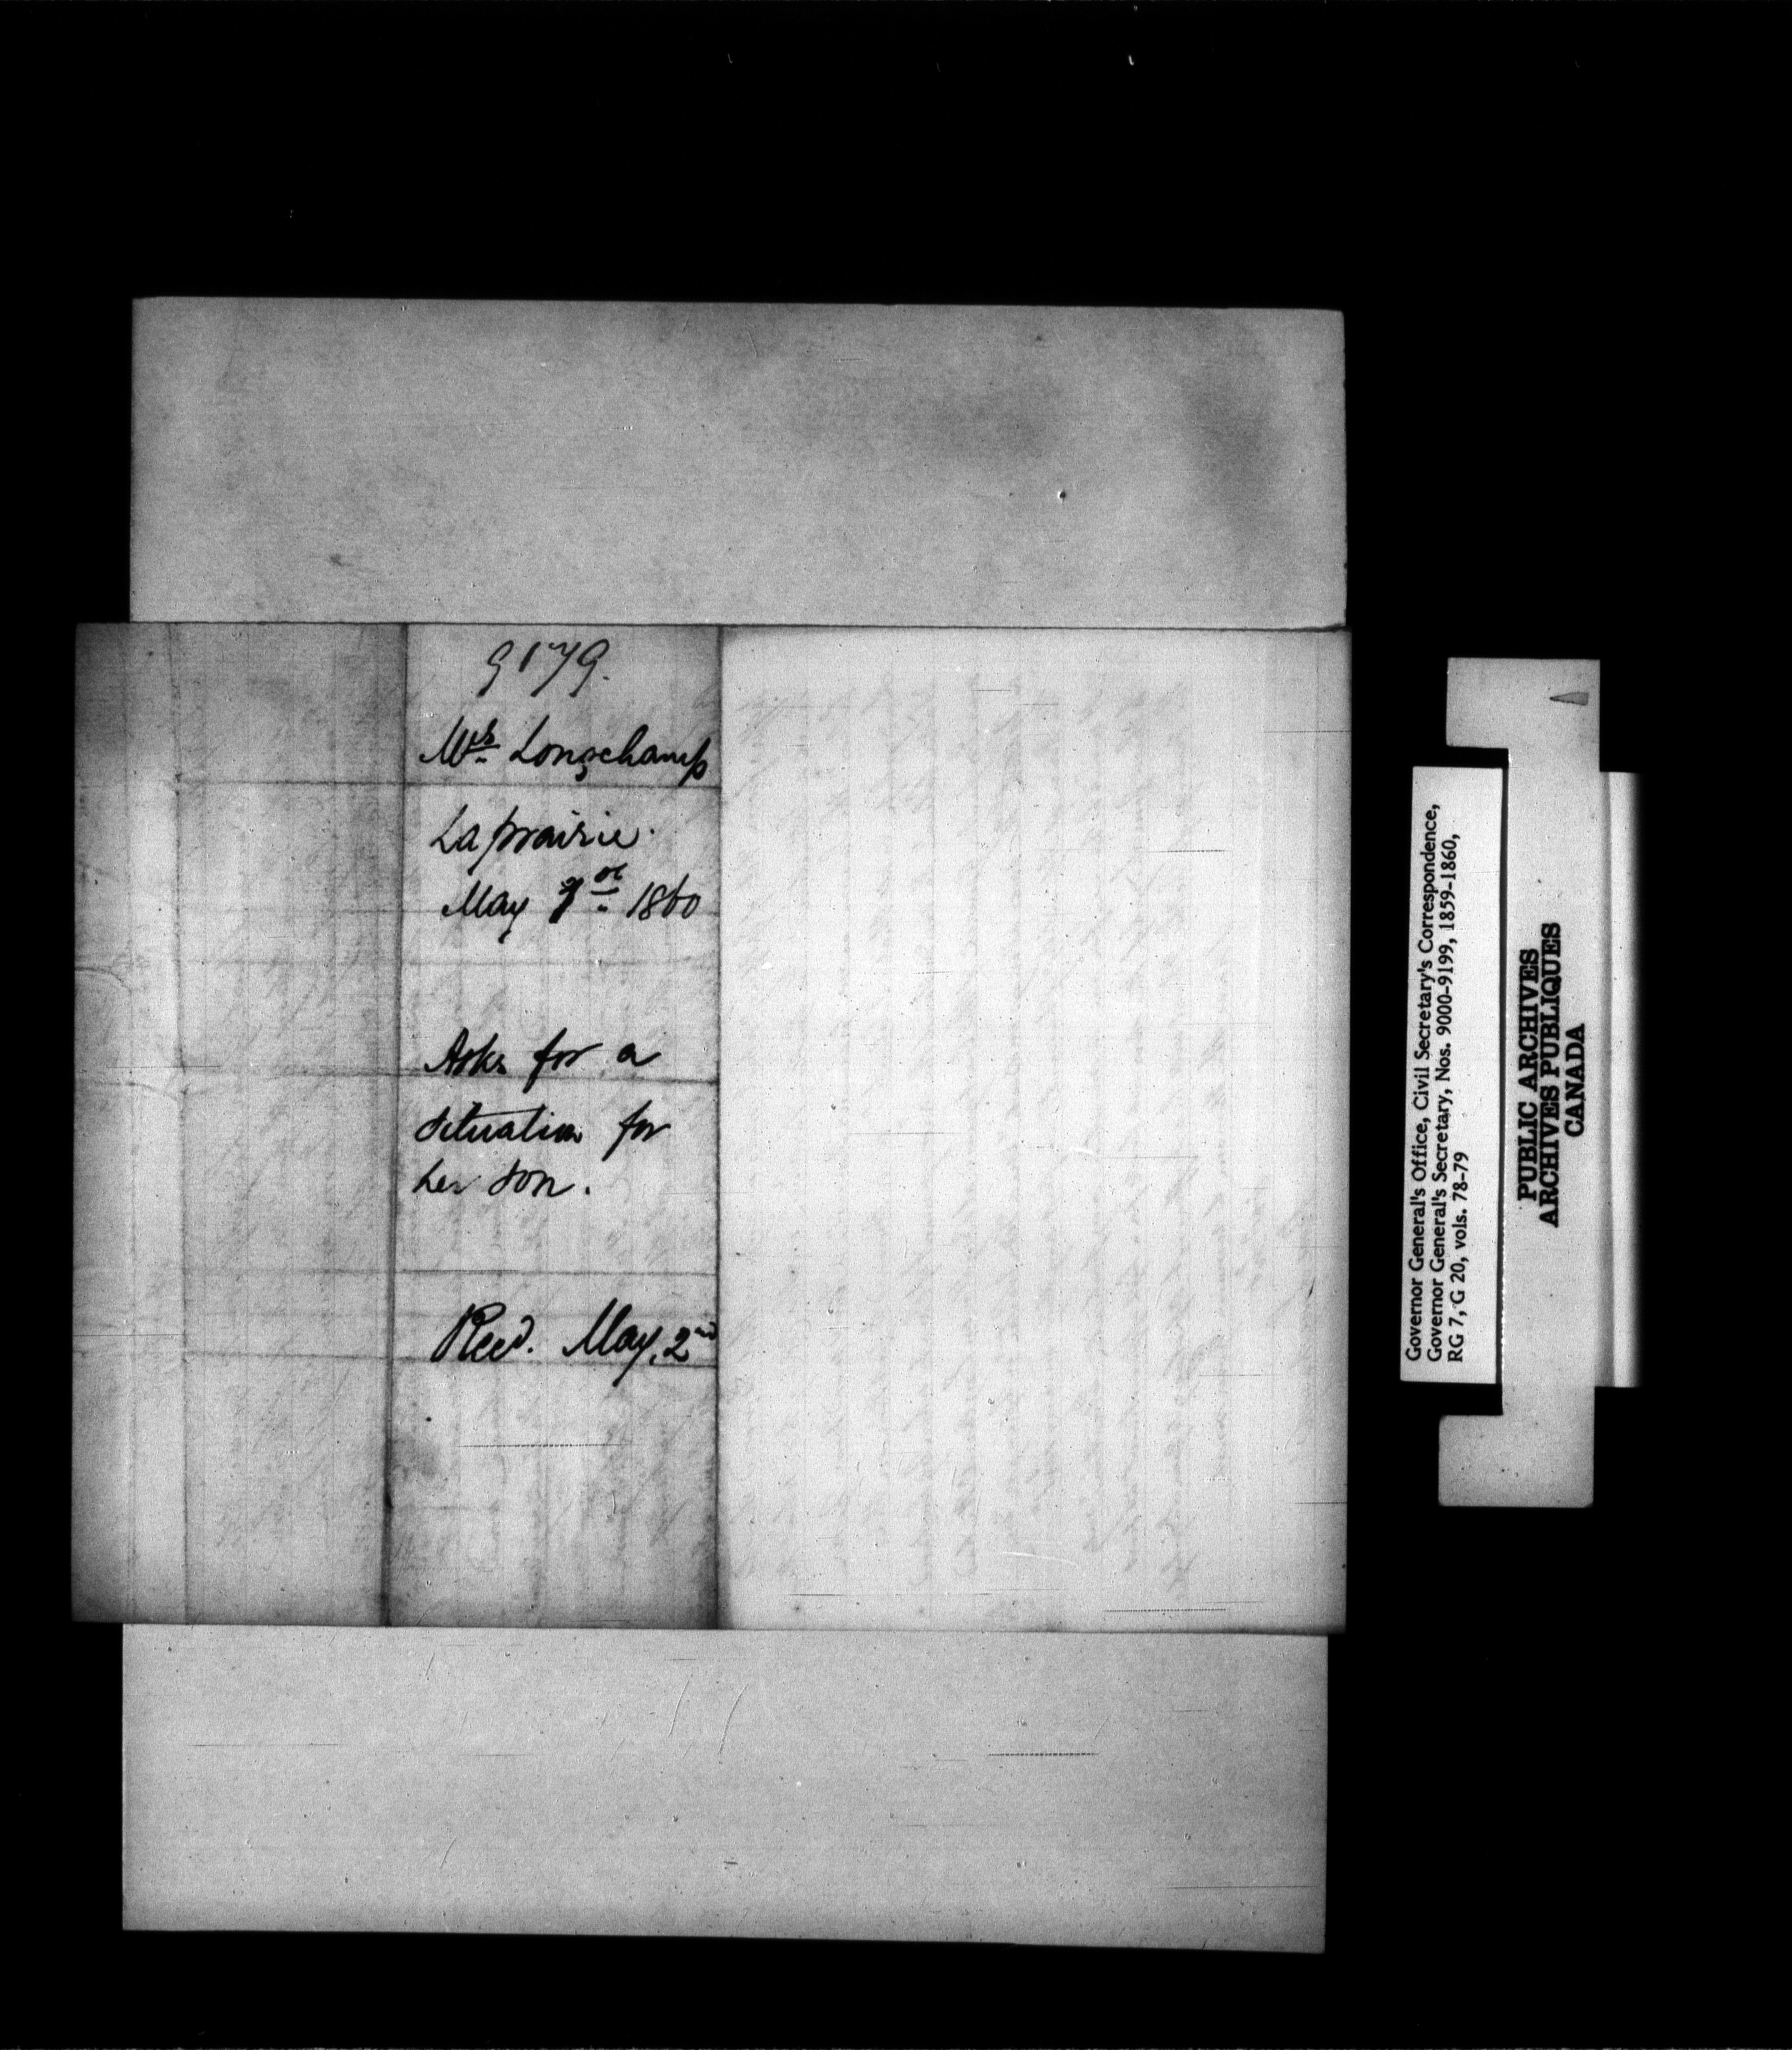 9179.
Mrs Longchamp
Laprairie.
May 1st 1860
Asks for a
situation for
her son.
Recd. May, 2nd
Governor General's Office, Civil Secretary's Correspondence,
Governor General's Secretary, Nos. 9000-9199, 1859-1860,
RG 7, G 20, vols. 78-79
PUBLIC ARCHIVES
ARCHIVES PUBLIQUES
CANADA